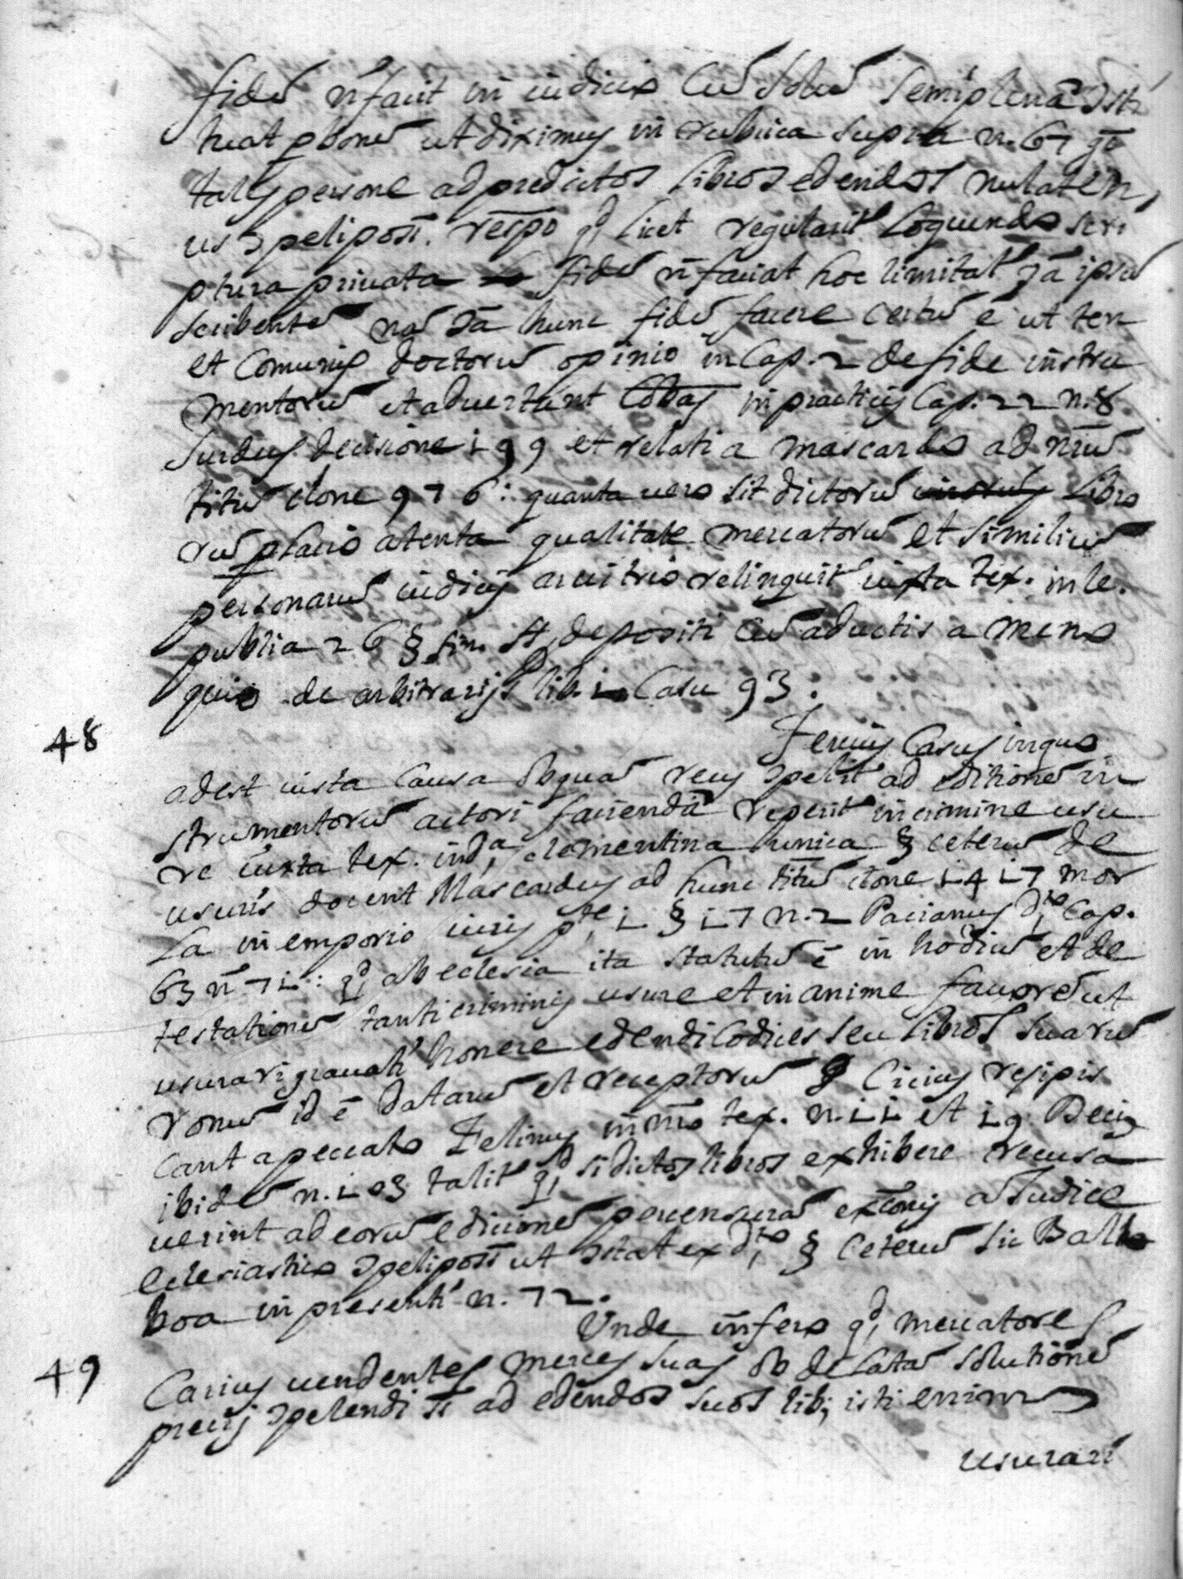 fidē ñ facit in iudicio Cū solū semiplenā
heat pbonē ut diximus in rubrica supra n. 67
tales persone ad predictos libros edendos nulaten,
us Ɔpeli posst. respo qđ licet regulariť loquendo scri
ptura privata fidē ñ faciat hoc limitať Ɔa ipsū
scribentē nā Ɔa hunc fidē facere certū ē ut ten
et comunis doctorū opinio in Cap. 2 de fide instru
mentorū et advertunt Cobas in practicis Cap. 22 n. 8
Surdus decisione 199 et relati a mascardo ad nrū
titū clone 976: quanta vero sit dictorū libro
rū atenta qualitate mercatorū et similiū
personarū iudicis arvitrio relinquiť iuxta tex. in le.
publia 26 § fin. ff, depositi cū aductis a meno
quio de arbitrarijs lib. 1 Casu 93.
48 Tercius Casus in quo
adest iusta causa ob quā reus Ɔpeliť ad editionē in
strumentorū actori faciendā reperiť in crimine usu
re iuxta tex. in dª, clementina unica § ceterū de
usuris docent Mascardus ad hunc titū clone 1417 mor
la in emporio iuris pᵉ, 1 § 17 n. 2 Pacianus dᵗᵒ, Cap.
63 ñ 71: qđ ab eclesia ita statutū ē in hodiū et de
testationē tanti criminis usure et in anime favorē ut
usurari gravati honere edendi Codices seu libros suarū
ronū id ē datarū et receptorū Cicius resipis
cant a peccato Felinus in nrō tex. n. 11 et 19 Decius
ibidē n. 103 taliť qđ si dictos libros exhibere recusa
verint ad eorū edicionē per censurā a Judice
eclesiastico Ɔpeli posst ut Ɔstat ex dᵗᵒ, § Ceterū sic Balb
boa in presenti n. 72.
Unde infero qđ, mercatores
49 Carius vendentes merces suas ob delatā solutionē
precij Ɔpelendi st ad edendos suos lib; isti enim
usurari